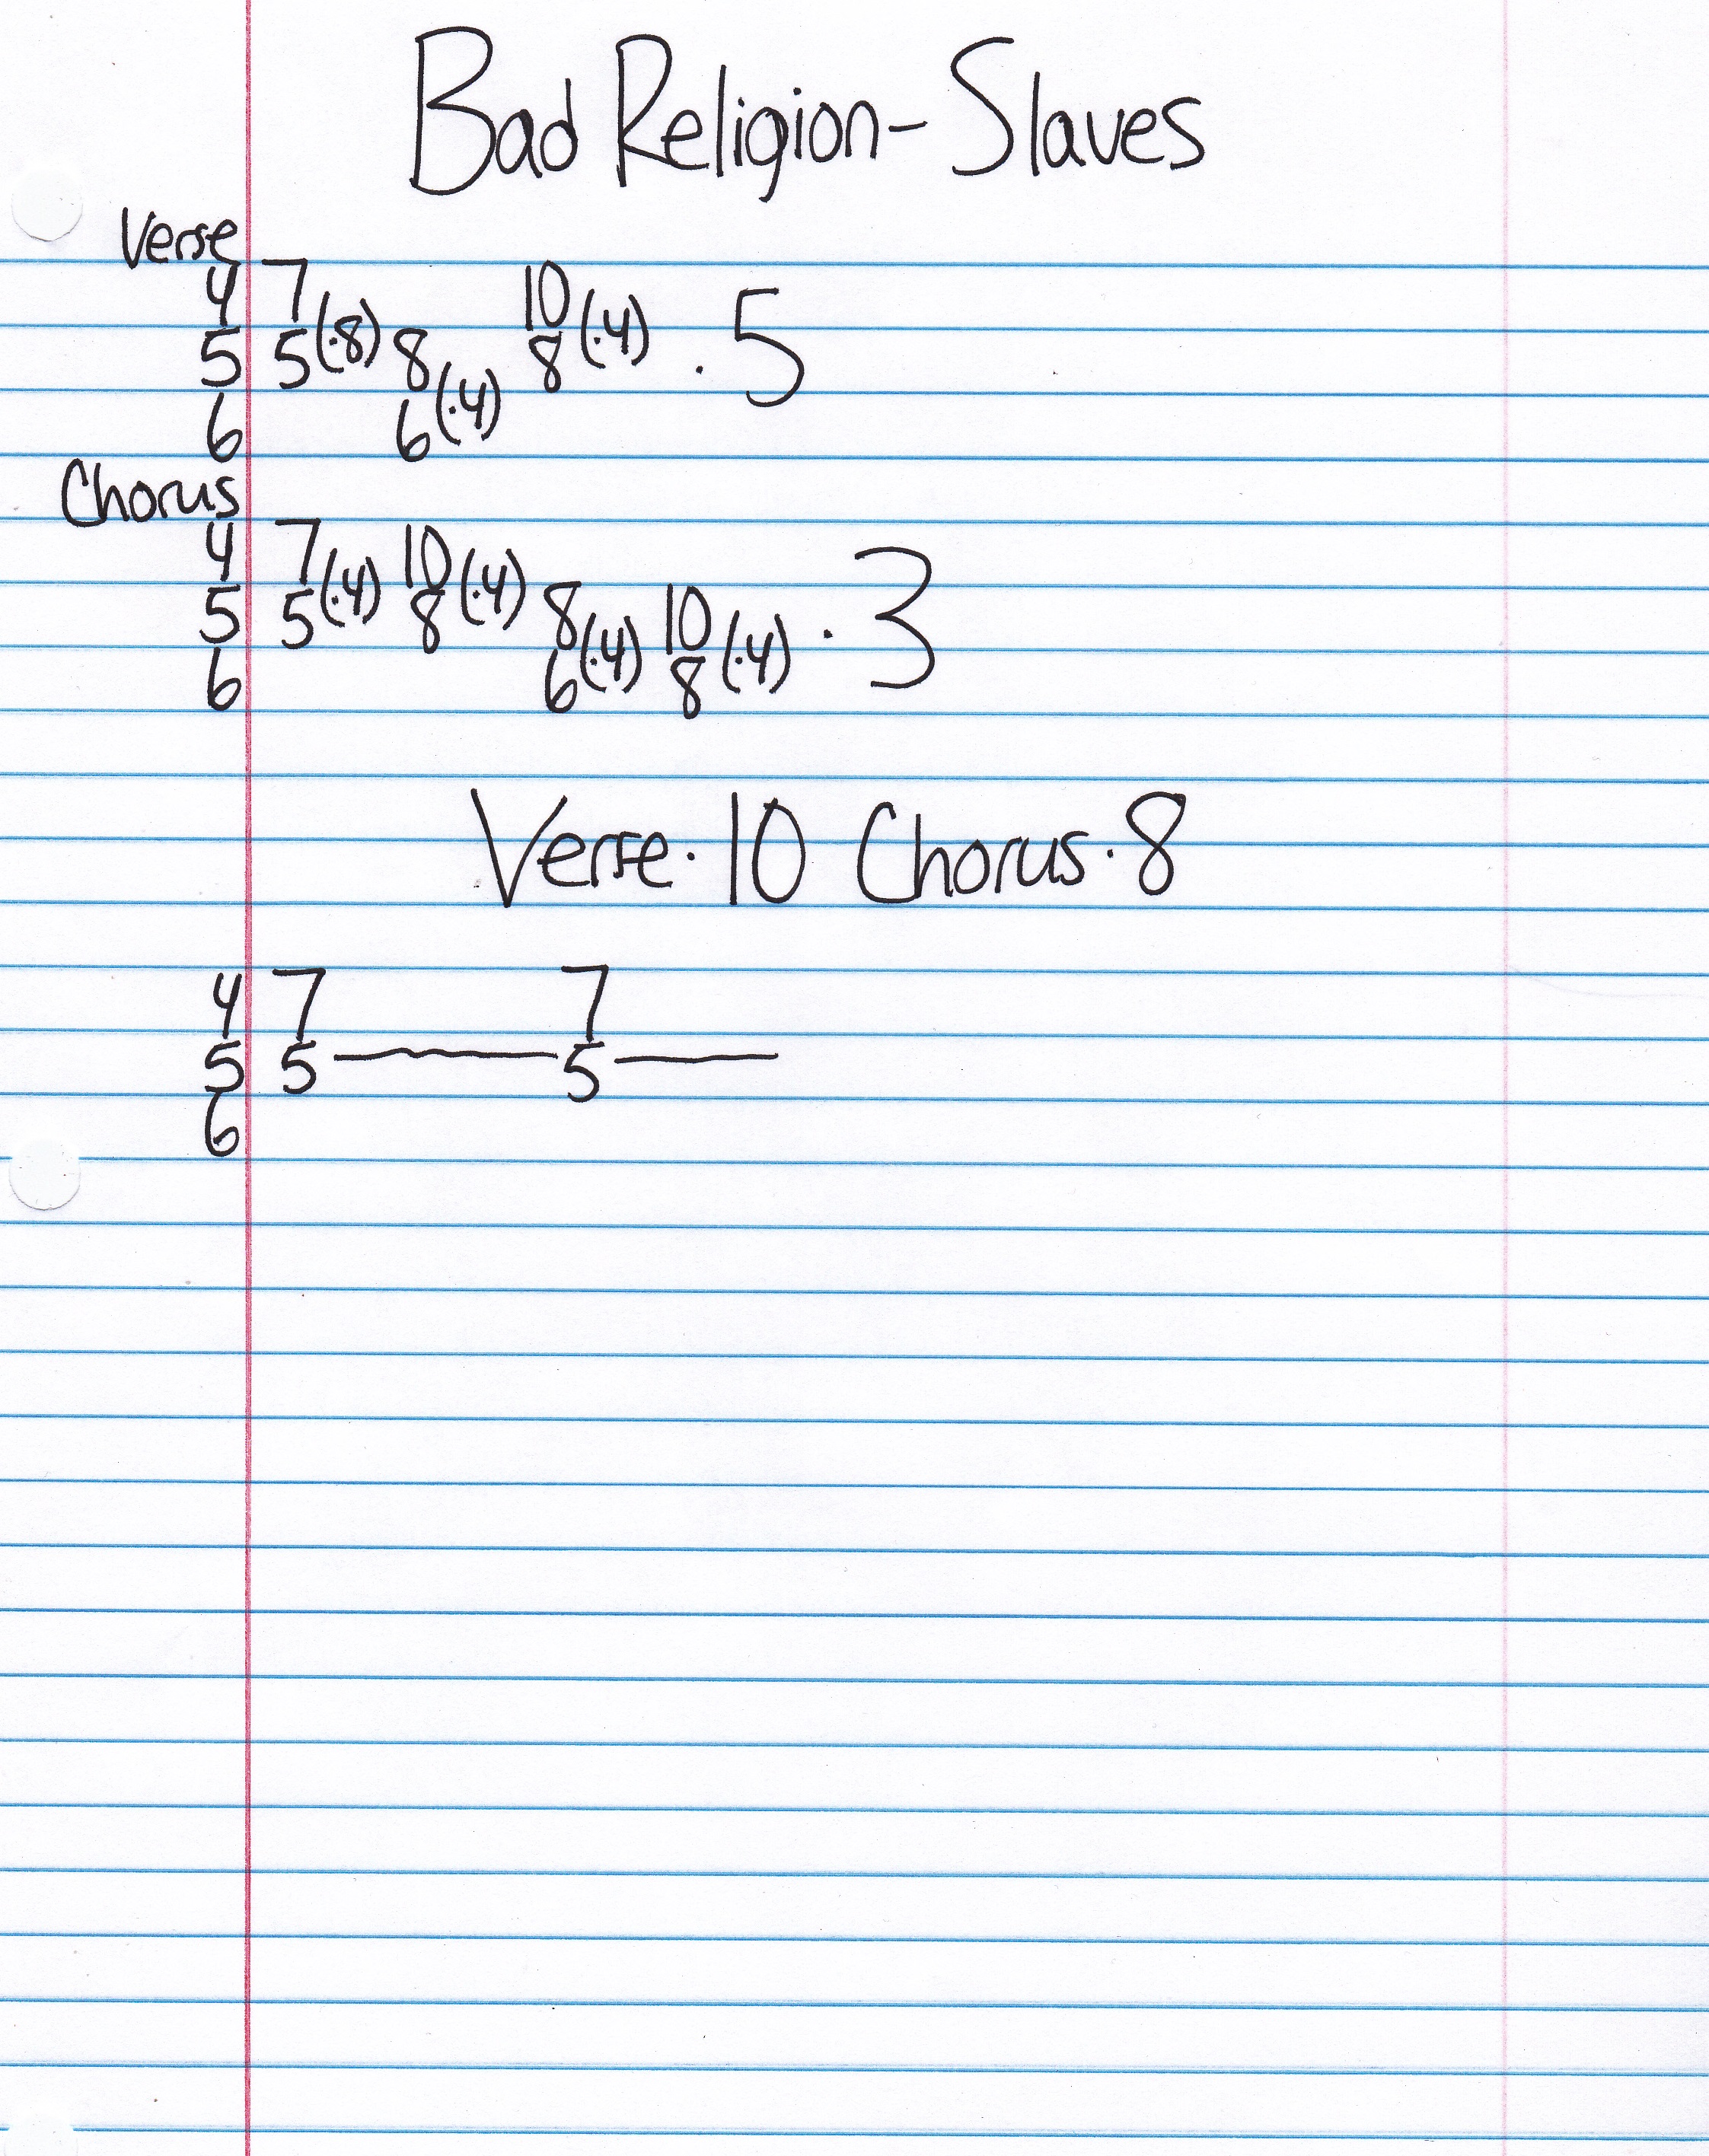 Bad Religion- Slaves
Verse
4 7 10
5 5(·8) 8 8(·4) ·5
6 6(·4)
Chorus
4 7 10
5 5(·4) 8(·4) 8 10 ·3
6 6(·4) 8(·4)
Verse·10 Chorus·8
4 7 7
5 5 — 5 —
6